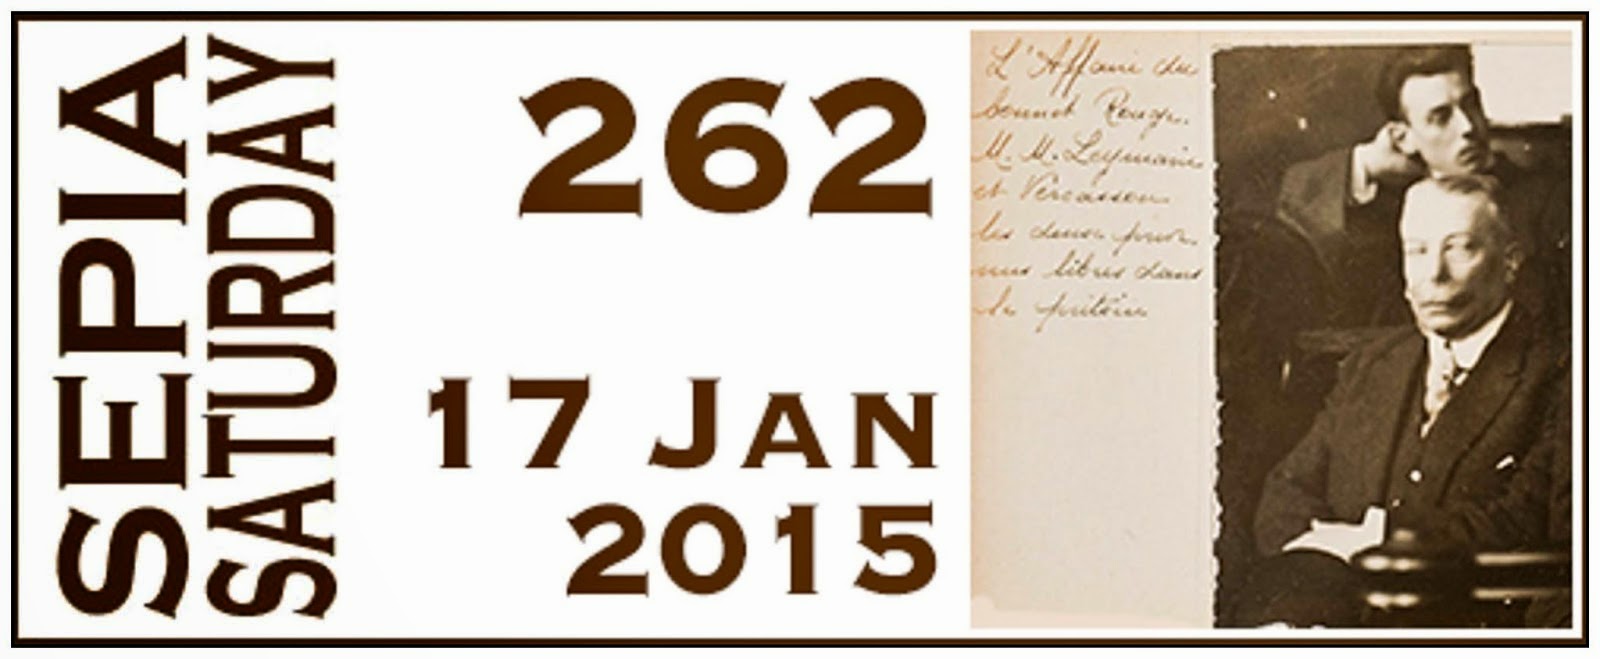 SEPIA
SATURDAY
262
17 JAN
2015
L'Affaire du
bonnet Rouge.
M. M. Leymarie
et Vercasson
les deux prév
nus libres dans
le prétoire